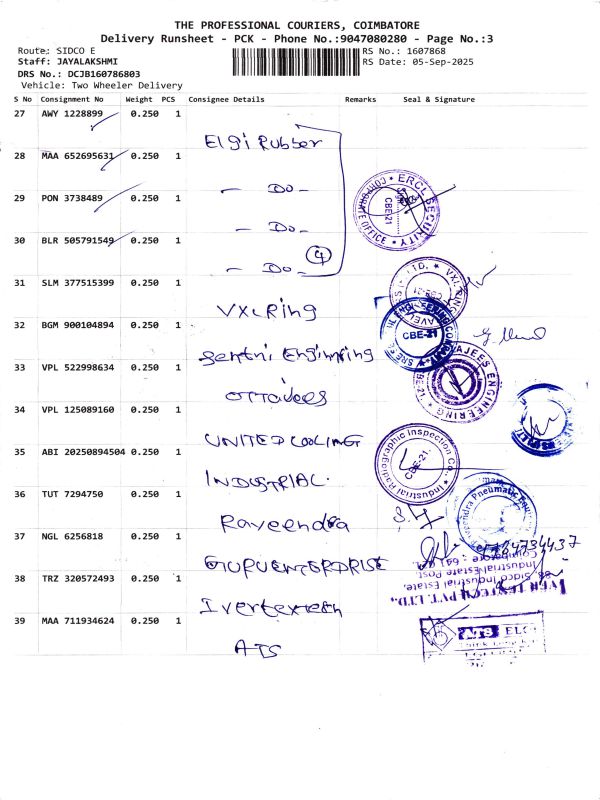 THE PROFESSIONAL COURIERS, COIMBATORE
Delivery Runsheet - PCK - Phone No.:9047080280 - Page No.:3
Route: SIDCO E
RS No.: 1607868
Staff: JAYALAKSHMI
RS Date: 05-Sep-2025
DRS No.: DCJB160786803
Vehicle: Two Wheeler Delivery
S No Consignment No Weight PCS Consignee Details Remarks Seal & Signature
27 AWY 1228899 0.250 1 Elgi Rubber
28 MAA 652695631 0.250 1 - Do -
29 PON 3738489 0.250 1 - Do -
30 BLR 505791549 0.250 1 - Do - 4
31 SLM 377515399 0.250 1 VXLRing
32 BGM 900104894 0.250 1
33 VPL 522998634 0.250 1
34 VPL 125089160 0.250 1 UNITED COOLING
35 ABI 20250894504 0.250 1 INDUSTRIAL.
36 TUT 7294750 0.250 1 Raveendra
37 NGL 6256818 0.250 1
38 TRZ 320572493 0.250 1 Ivertextech
39 MAA 711934624 0.250 1 ATS
ERCL SECURITY
CORPORATE OFFICE
CBE-21
VXL RING
CBE-21
AJEES ENGINEERING
CBE-21
Industrial Radiographic Inspection Co.,
CBE-21.
Raveendra Pneumatic
Sidco Industrial Estate,
Industrial Estate Post
ATS ELG